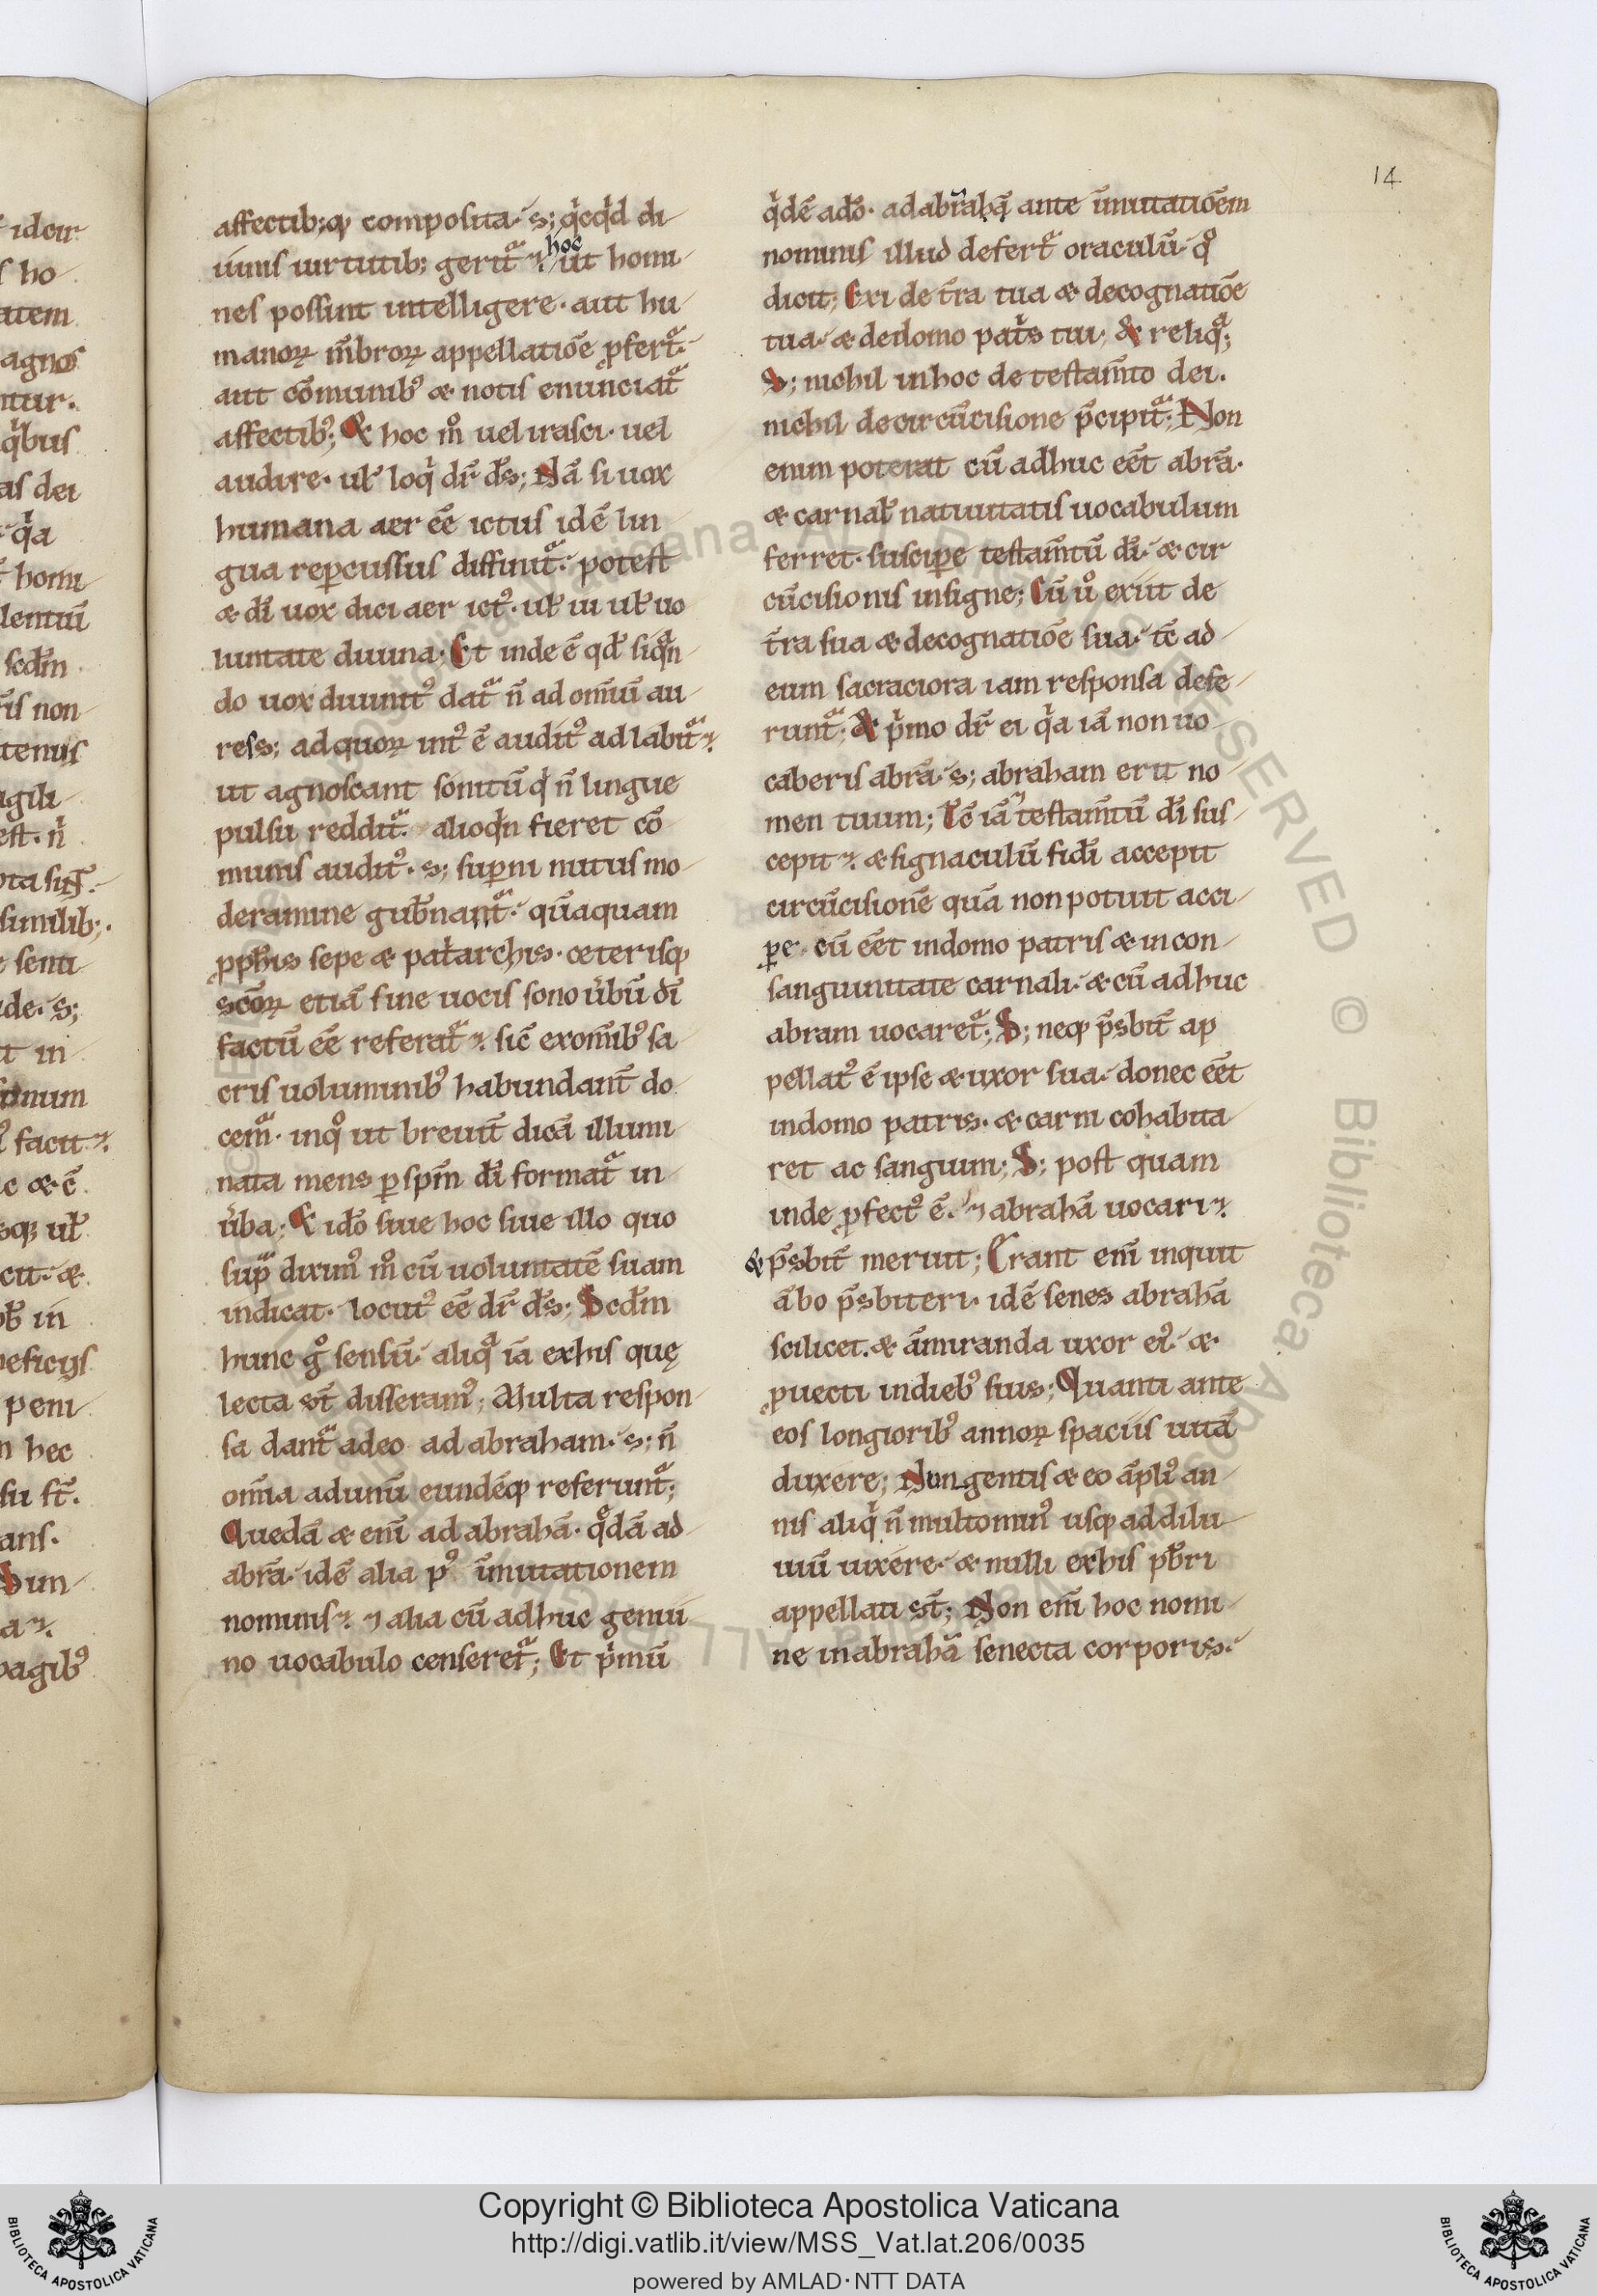 14
affectib;q; composita. s; q̇cq̇d di
uinis uirtutib; gerit᷑ hoc ut homi
nes possunt intelligere. aut hu
manoꝝ m̄broꝝ appellatiōe ꝓfert᷑.
aut cōmunib᷒ & notis enunciat᷑
affectib᷒; & hoc m̊ uel irasci. uel
audire. ul̄ loq̇ dr̄ ds̄; Nā si uox
humana aer eē ictus idē lin
gua reꝑcussus diffinit᷑. potest
& dī uox dici aer ict᷒. ul̄ ui ul̄ uo
luntate diuina. Et inde ē qd̄ siqn̄
do uox diuinit᷒ dat᷑ n̄ ad om̄iū au
res; ad quoꝝ int᷒ ē audit᷒ adlabit᷑.
ut agnoscant sonitū q̇ n̄ lingue
pulsu reddit᷑. alioq̇n fieret cō
munis audit᷒. s; suꝑni nutus mo
deramine gub̄nant᷑. quāquam
ꝓph̄is sepe & pat̄archis. ceterisq;
sc̄oꝝ etiā sine uocis sono u̇bū dī
factū eē referat᷑. sic̄ ex om̄ib᷒ sa
cris uoluminib᷒ habundant̄ do
cem᷑. inq̊ ut breuit̄ dicā illumi
nata mens ꝑ sp̄m dī format᷑ in
u̇ba; & idō siue hoc siue illo quo
sup᷑ dixim᷒ m̊ cū uoluntatē suam
indicat. locut᷒ eē dr̄ ds̄; Scd̄m
hunc g̊ sensū. aliq᷑ iā ex his quę
lecta st̄ disseram᷒; Multa respon
sa dant᷑ adeo ad abraham. s; n̄
om̄ia ad unū eundēq; referunt᷑;
Quedā & eni̅ ad abrahā. q᷑dā ad
abrā. idē alia p᷒ īmutationem
nominis. ⁊ alia cū adhuc genui
no uocabulo censeret᷑; Et ṗmū
q̇dē adō. ad abrahā ante īmutatiōem
nominis illud defert᷑ oraculū. q̊
dicit; Exi de t̄ra tua & de cognatiōe
tua. & de domo paṫs tui. & reliq᷑;
S; nichil in hoc de testam̄to dei.
nichil de circūcisione p̄cipit᷑; Non
enim poterat cū adhuc eēt abrā.
& carnal̄ natiuitatis uocabulum
ferret. susciꝑe testam̄tū dī. & cir
cūcisionis insigne; Cū u̇̊ exiit de
t̄ra sua & de cognatiōe sua. tc̄ ad
eum sacraciora iam responsa defe
runt᷑; & ṗmo dr̄ ei q̇a iā non uo
caberis abrā. s; abraham erit no
men tuum; Tc̄ iā testam̄tū dī sus
cepit. & signaculū fidi̅ accepit
circūcisionē quā non potuit acci
ꝑe. cū eēt in domo patris & in con
sanguinitate carnali. & cū adhuc
abram uocaret᷑; S; neq; p̄sbit̄ ap
pellat᷒ ē ipse & uxor sua. donec eēt
in domo patris. & carni cohabita
ret ac sanguini; S; post quam
inde ꝓfect᷒ ē. ⁊ abrahā uocari.
& p̄sbit̄ meruit; Erant eni̅ inquit
ābo p̄sbiteri. idē senes abrahā
scilicet. & āmiranda uxor ei᷒. &
ꝓuecti in dieb᷒ suis; Quanti ante
eos longiorib᷒ annoꝝ spaciis uitā
duxere; Nongentis & eo āpli᷒ an
nis aliq̇ n̄ multo min᷒ usq; ad dilu
uiū uixere. & nulli ex his pb̄ri
appellati st̄; Non eni̅ hoc nomi
ne in abrahā senecta corporis.
Copyright © Biblioteca Apostolica Vaticana
http://digi.vatlib.it/view/MSS_Vat.lat.206/0035
powered by AMLAD·NTT DATA